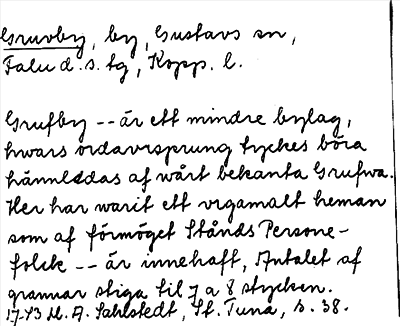 Gruvby, by, Gustavs sn,
Falu d.s. tg, Kopp. l.
Grufby -- är ett mindre bylag,
hwars ordavrsprung tyckes böra
hännledas af wårt bekanta Grufwa.
Her har warit ett vrgamalt heman
som af förmöget Stånds Persone-
folck -- är innehaft, Antalet af
grannar stiga til 7 a 8 stycken.
1743 M. A. Sahlstedt, St. Tuna, s. 38.